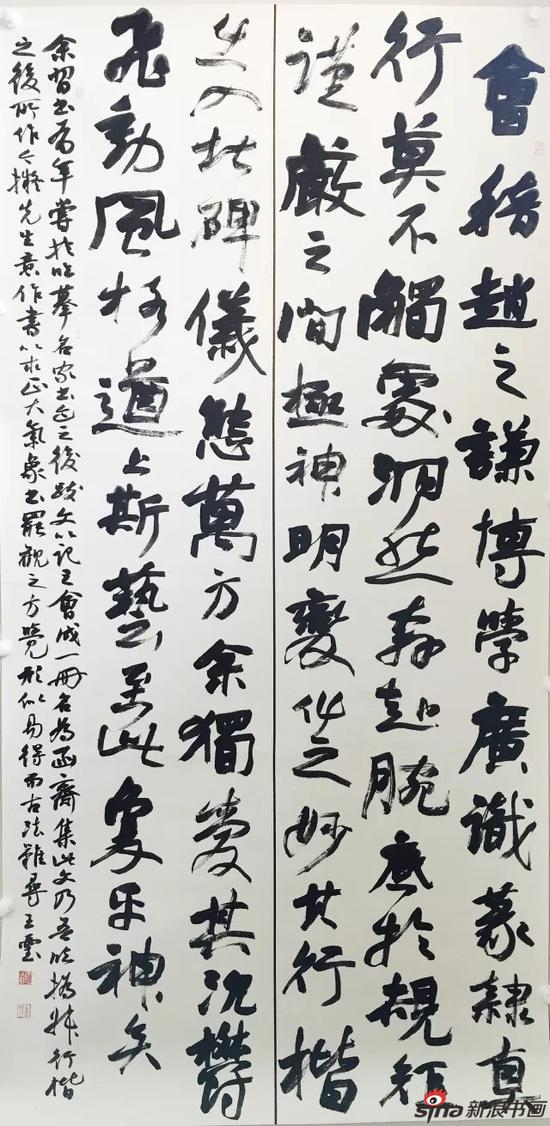 會稽趙之謙博學廣識篆隸真
行莫不觸處然奔赴腕底於規矩
謹嚴之間極神明變化之妙其行楷
出入北碑儀態萬方余獨愛其沈鬱
飛動風格遒上斯藝至此乎神矣
余習書有年嘗於臨摹名家書迹之後跋文以記之會成一冊名為齋集此文乃吾臨撝叔行楷
之後所作今擬先生意作書以求正大氣象書罷觀之方覺形似易得而古法難尋王雲
sina新浪书画